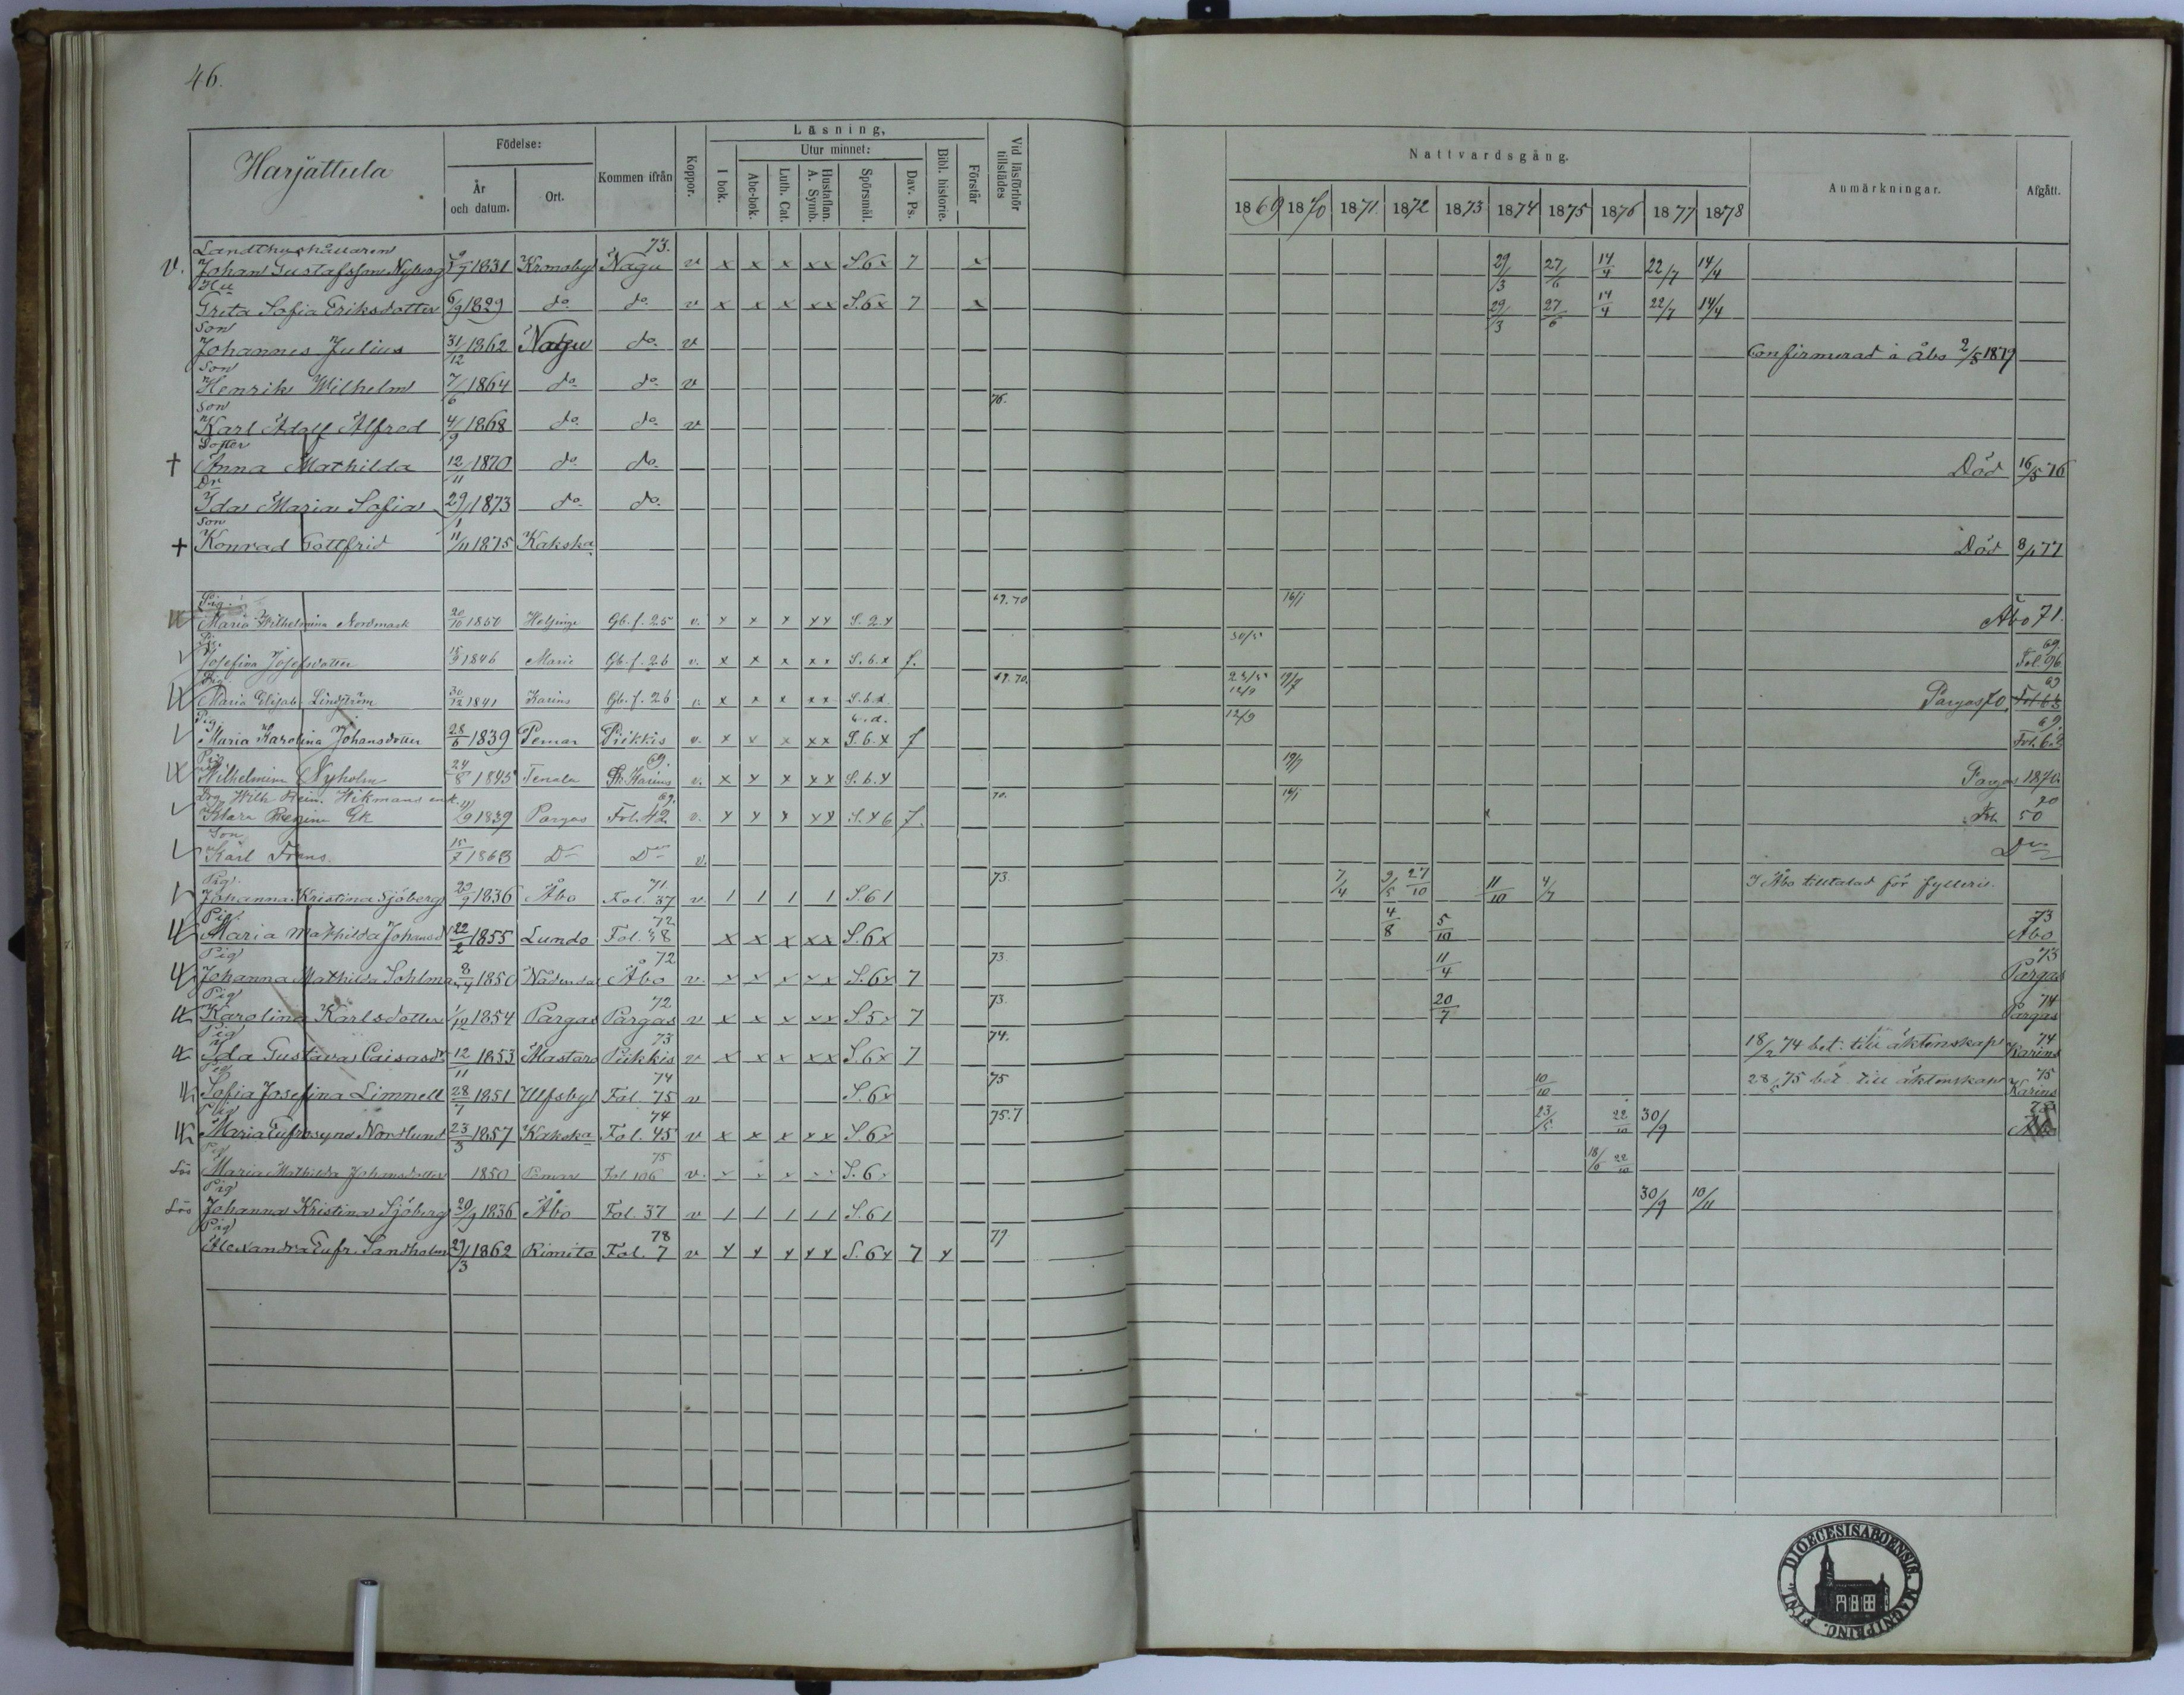 46.
Harjattula
Födelse:
År och datum.
Ort.
Kommen ifrån
Koppor.
Läsning,
I bok.
Utur minnet:
Abc-bok.
Luth. Cat.
Hustaflan. A. Symb.
Spörsmål.
Dav. Ps.
Bibl. historie.
Förstår
Vid läsförhör tillstädes
Nattvardsgång.
1869 1870 1871 1872 1873 1874 1875 1876 1877 1878
Anmärkningar.
Afgått.
Landthushållaren 73.
v. Johan Gustafsson Nyberg 1831 Kromsby Nagu v x x x xx S.6x 7 x 29/3 27/6 14/4 22/7 14/4
Hu
Greta Sofia Eriksdotter 6/9 1829 do do v x x x xx S.6x 7 x 29/3 27/6 14/4 22/7 14/4
Son
Johannes Julius 31/12 1862 Nagu do v Confirmerad i Åbo 2/5 1879
Son
Henrik Wilhelm 7/6 1864 do do v
Son 76.
Karl Adolf Alfred 4/9 1868 do do v
Dotter
† Anna Mathilda 12/11 1870 do do Död 16/5 76
Dr
Ida Maria Sofia 29/1 1873 do do
Son
† Konrad Gottfrid 11/11 1875 Kakska Död 8/1 77
Pig. 69.70 16/1
Maria Wilhelmina Nordmark 20/10 1850 Helsinge Gb. f. 25 v. x x x xx S. 2.x Åbo 71.
Pig. 30/5 69.
Josefina Josefsdotter 15/9 1846 Marie Gb. f. 26 v. x x x xx S.6.x 7. Fol. 96
Pig. 69.70. 23/5 12/9 19/7 69
Maria Elisab. Lindström 30/12 1841 Karins Gb. f. 26 v. x x x xx S.6.x Pargas 70.
Pig. 12/9 69.
Maria Karolina Johansdotter 28/6 1839 Pemar Piikkis v. x x x xx S.6.x 7
Pig. 69. 19/7
Wilhelmina Nyholm 24/8 1845 Tenala St. Karins v. x x x xx S.6.x Pargas 1870.
Drg Wilh. Rein. Wikmans enk. 69. 70. 16/1 70
Klara Regina Ek 11/9 1839 Pargas Fol. 42. v. x x x xx S.x6 7. Fol. 50
Son
Karl Frans 15/7 1863 Do Do v. Do
Pig. 71 73. 7/4 9/5 27/10 11/10 4/7
Johanna Kristina Sjöberg 20/9 1836 Åbo Fol. 37 v 1 1 1 1 S.61 I Åbo tilltalad för fylleri.
Pig. 72 4/8 5/10 73
Maria Mathilda Johansd 22/2 1855 Lundo Fol. 38 x x x xx S.6x Åbo
Pig 72 73. 11/4 73
Johanna Mathilda Sohlman 1850 Nådendal Åbo v. x x x xx S.6x 7 Pargas
Pig 72 73. 20/7 74
Karolina Karlsdotter 1/10 1854 Pargas Pargas v x x x xx S5x 7 Pargas
Pig 73 74. 74
Ida Gustava Caisasdr 12/11 1853 Mastaro Piikkis v x x x xx S.6x 7 18/2 74 bet. till äktenskap Karins
Pig 74 75 10/10 75
Sofia Josefina Limnell 28/7 1851 Ulfsby Fol. 75 v S.6x 28/5 75 bet. till äktenskap Karins
Pig 74 75.7 23/5 22/10 30/9 78
Maria Eufrosyne Nordlund 23/3 1857 Kakska Fol. 45 v x x x xx S.6x Åbo
Pig 75 18/6 22/10
Lös Maria Mathilda Johansdotter 1850 Pemar Fol 106 v. x x x xx S.6x
Pig 30/9 10/11
Lös Johanna Kristina Sjöberg 20/9 1836 Åbo Fol. 37 v 1 1 1 11 S.61
Pig 78 79
Alexandra Eufr. Sandholm 29/3 1862 Rimito Fol. 7 v x x x xx S.6x 7 x
DIOECESIS ABOENSIS. MAGNI PRINC. FINL.